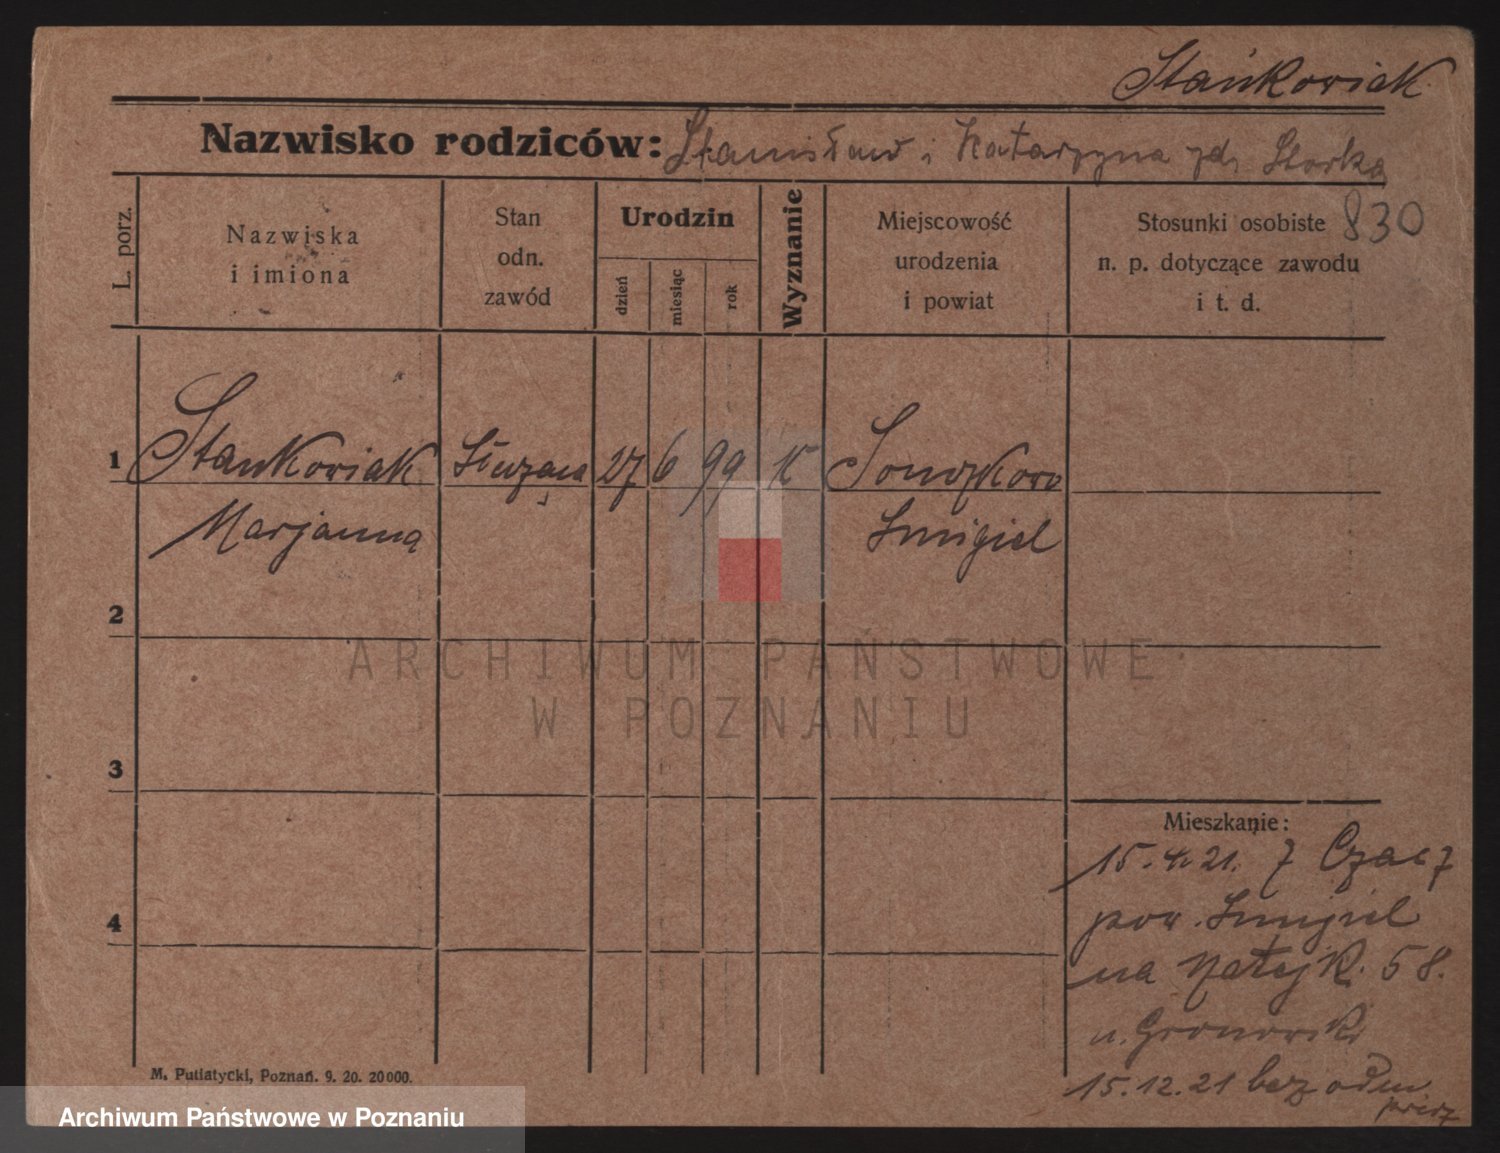 Stańkowiak
Nazwisko rodziców: Stanisław i Katarzyna
L. porz.
Nazwiska
i imiona
Stan
odn.
zawód
Urodzin
dzień
miesiąc
rok
Wyznanie
Miejscowość
urodzenia
i powiat
Stosunki osobiste 830
n. p. dotyczące zawodu
i t. d.
1 Stankowiak Służąca 27 6 99 K
Marjanna Śmigiel
2
3
4
Mieszkanie:
15.4.21. z Czacz
pow. Śmigiel
na Matejk. 58.
u. Gronowski
15.12.21 bez odm
M. Putiatycki, Poznań. 9. 20. 20000.
ARCHIWUM PAŃSTWOWE
W POZNANIU
Archiwum Państwowe w Poznaniu